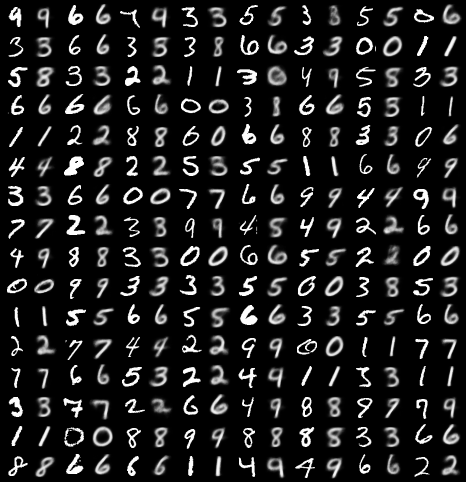 9 9 6 6 7 9 3 3 5 5 3 8 5 5 0 6
3 3 6 6 3 3 3 8 6 6 3 3 0 0 1 1
5 8 3 3 2 2 1 1 3 0 4 9 5 8 3 3
6 6 6 6 6 6 0 0 3 8 6 6 5 3 1 1
1 1 2 2 8 8 0 0 6 6 8 8 3 3 0 6
4 4 8 8 2 2 5 3 5 5 1 1 6 6 9 9
3 3 6 6 0 0 7 7 6 6 9 9 4 4 9 9
7 7 2 2 3 8 9 9 4 5 4 9 2 2 6 6
4 9 8 8 3 3 0 0 6 6 5 5 2 2 0 0
0 0 9 9 3 3 3 3 5 5 0 0 3 8 5 3
1 1 5 5 6 6 5 5 6 6 3 3 5 5 6 6
2 2 7 7 4 4 2 2 9 9 0 0 1 1 7 7
7 7 6 6 5 3 2 2 4 9 1 1 3 3 1 1
3 3 7 7 2 2 6 6 4 9 8 8 9 9 7 9
1 1 0 0 8 8 9 9 8 8 8 8 3 3 6 6
8 8 6 6 6 6 1 1 4 9 4 9 6 6 2 2